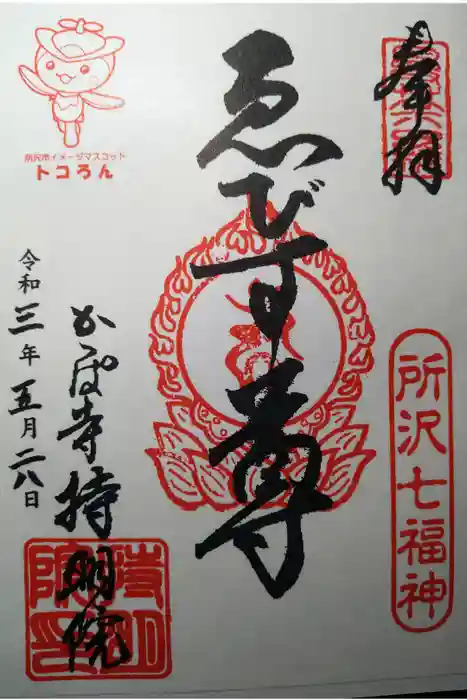 奉拝
所沢七福神
ゑびす尊
所沢市イメージマスコット
トコろん
かっぱ寺持明院
令和三年五月二八日